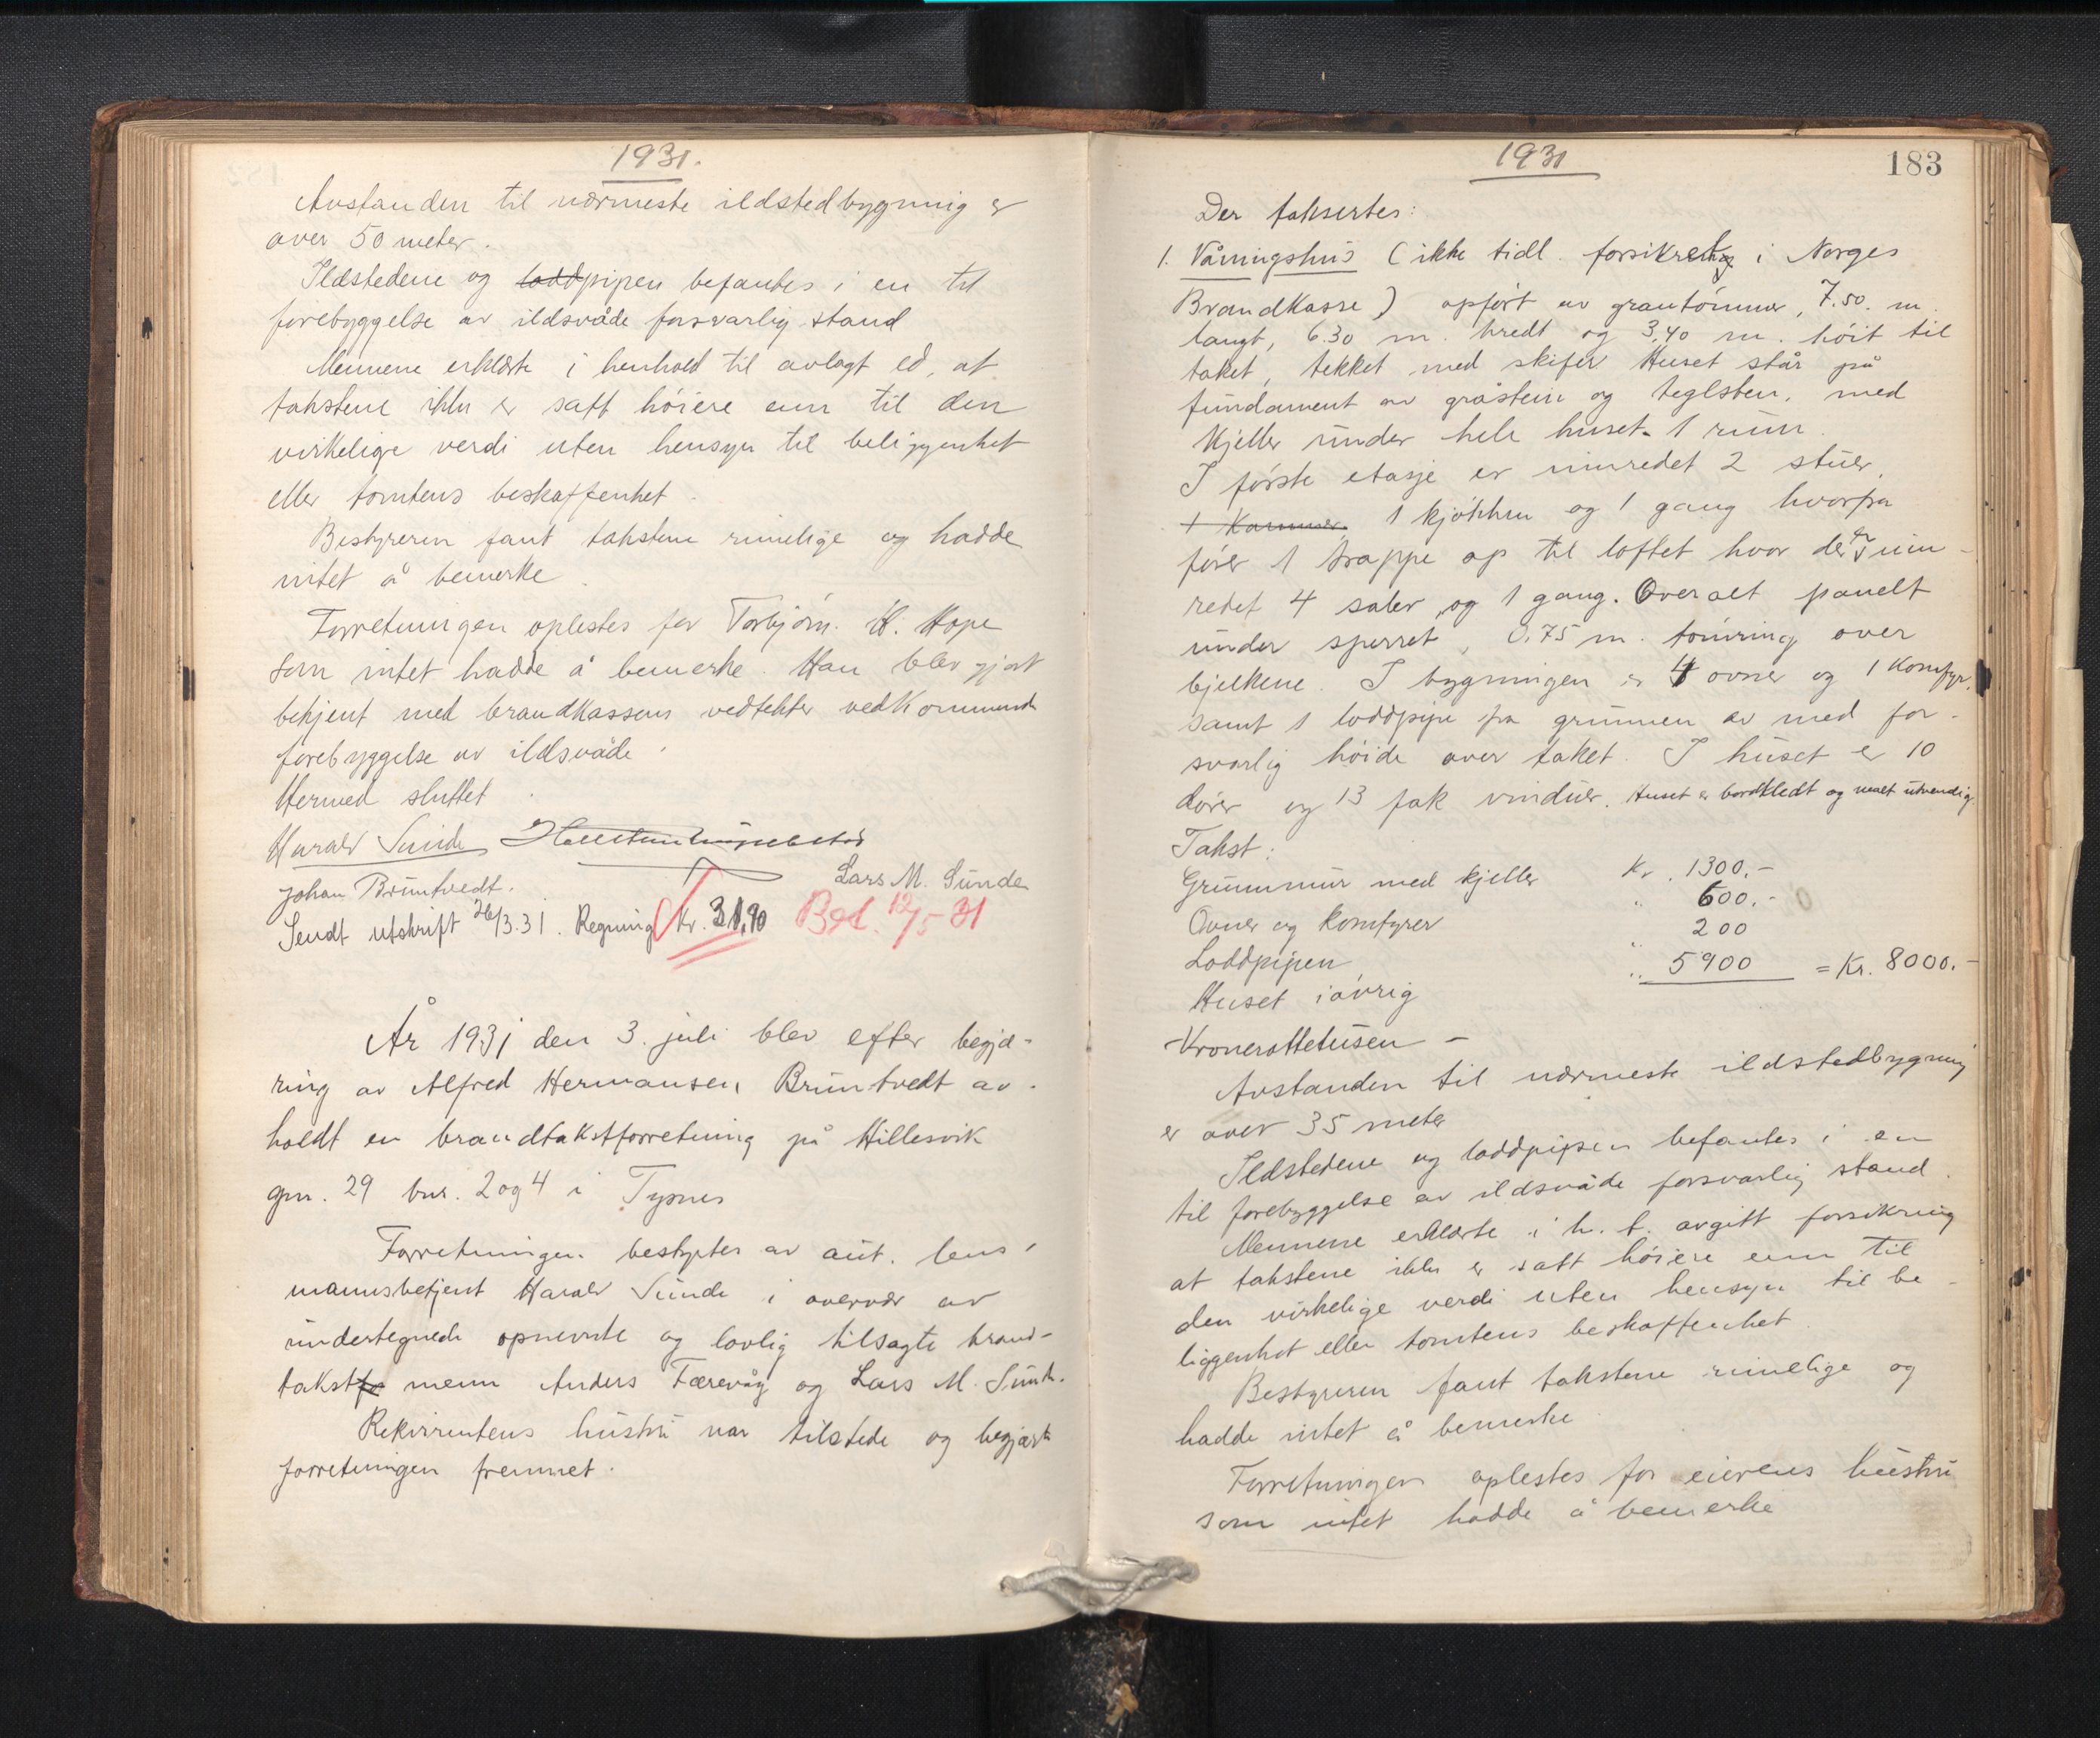 1931.
Avstanden til nærmeste ildstedbygning er
over 50 meter.
Ildstedene og loddpipen befantes i en til
forebyggelse av ildsvåde forsvarlig stand
Mennene erklærte i henhold til avlagt ed, at
takstene ikke er satt höiere enn til den
virkelige verdi uten hensyn til beliggenhet
eller tomtens beskaffenhet.
Bestyreren fant takstene rimelige og hadde
intet å bemerke.
Forretningen oplestes for Torbjörn H. Hope
som intet hadde å bemerke. Han blev gjort
bekjent med brandkassens vedtekter vedkommende
forebyggelse av ildsvåde.
Hermed sluttet.
Harald Sunde
Johan Bruntvedt. Lars M. Sunde
Sendt utskrift 26/3.31. Regning kr. 31,90 Bet. 12/5-31
År 1931 den 3. juli blev efter begjæ-
ring av Alfred Hermansen Bruntvedt av-
holdt en brandtakstforretning på Hillesvik
gnr. 29 bnr. 2 og 4 i Tysnes
Forretningen bestyrtes av aut. lens-
mannsbetjent Harald Sunde i overvær av
undertegnede opnevnte og lovlig tilsagte brand-
takstfo menn Anders Færevåg og Lars M. Sunde.
Rekvirentens hustru var tilstede og begjærte
forretningen fremmet.
1931
183
Der taksertes:
1. Våningshus (ikke tidl. forsikret i Norges
Brandkasse) opført av grantömmer, 7.50. m.
langt, 6.30 m. bredt og 3,40 m. höit til
taket, tekket med skifer Huset står på
fundament av gråstein og teglsten, med
kjeller under hele huset. 1 rum.
I förste etasje er innredet 2 stuer,
1 Kammer, 1 kjökken og 1 gang hvorfra
förer 1 trappe op til loftet hvor der er inn-
redet 4 saler og 1 gang. Overalt panelt
under sperret, 0.75 m. tömring over
bjelkene. I bygningen er 4 ovner og 1 Komfyr,
samt 1 loddpipe fra grunnen av med for-
svarlig höide over taket. I huset er 10
dörer og 13 fak vinduer. Huset er bordkledt og malt utvendig
Takst:
Grunnmur med kjeller Kr. 1300.-
Ovner og komfyrer " 600.-
Loddpipen 200
Huset iövrig " 5900 = Kr. 8000.-
-Kroneråttetusen-
Avstanden til nærmeste ildstedbygning
er over 35 meter
Ildstedene og loddpipen befantes i en
til forebyggelse av ildsvåde forsvarlig stand.
Mennene erklærte i h. t. avgitt forsikring
at takstene ikke er satt höiere enn til
den virkelige verdi uten hensyn til be-
liggenhet eller tomtens beskaffenhet.
Bestyreren fant takstene rimelige og
hadde intet å bemerke.
Forretningen oplestes for eierens hustru
som intet hadde å bemerke